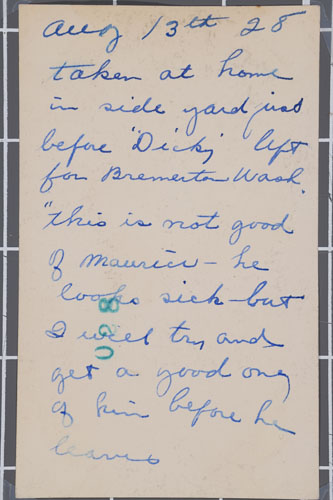 Aug 13th 28
taken at home
in side yard just
before "Dick" left
for Bremerton Wash.
"this is not good
of Maurice - he
looks sick - but
I will try and
get a good one
of him before he
leaves
028